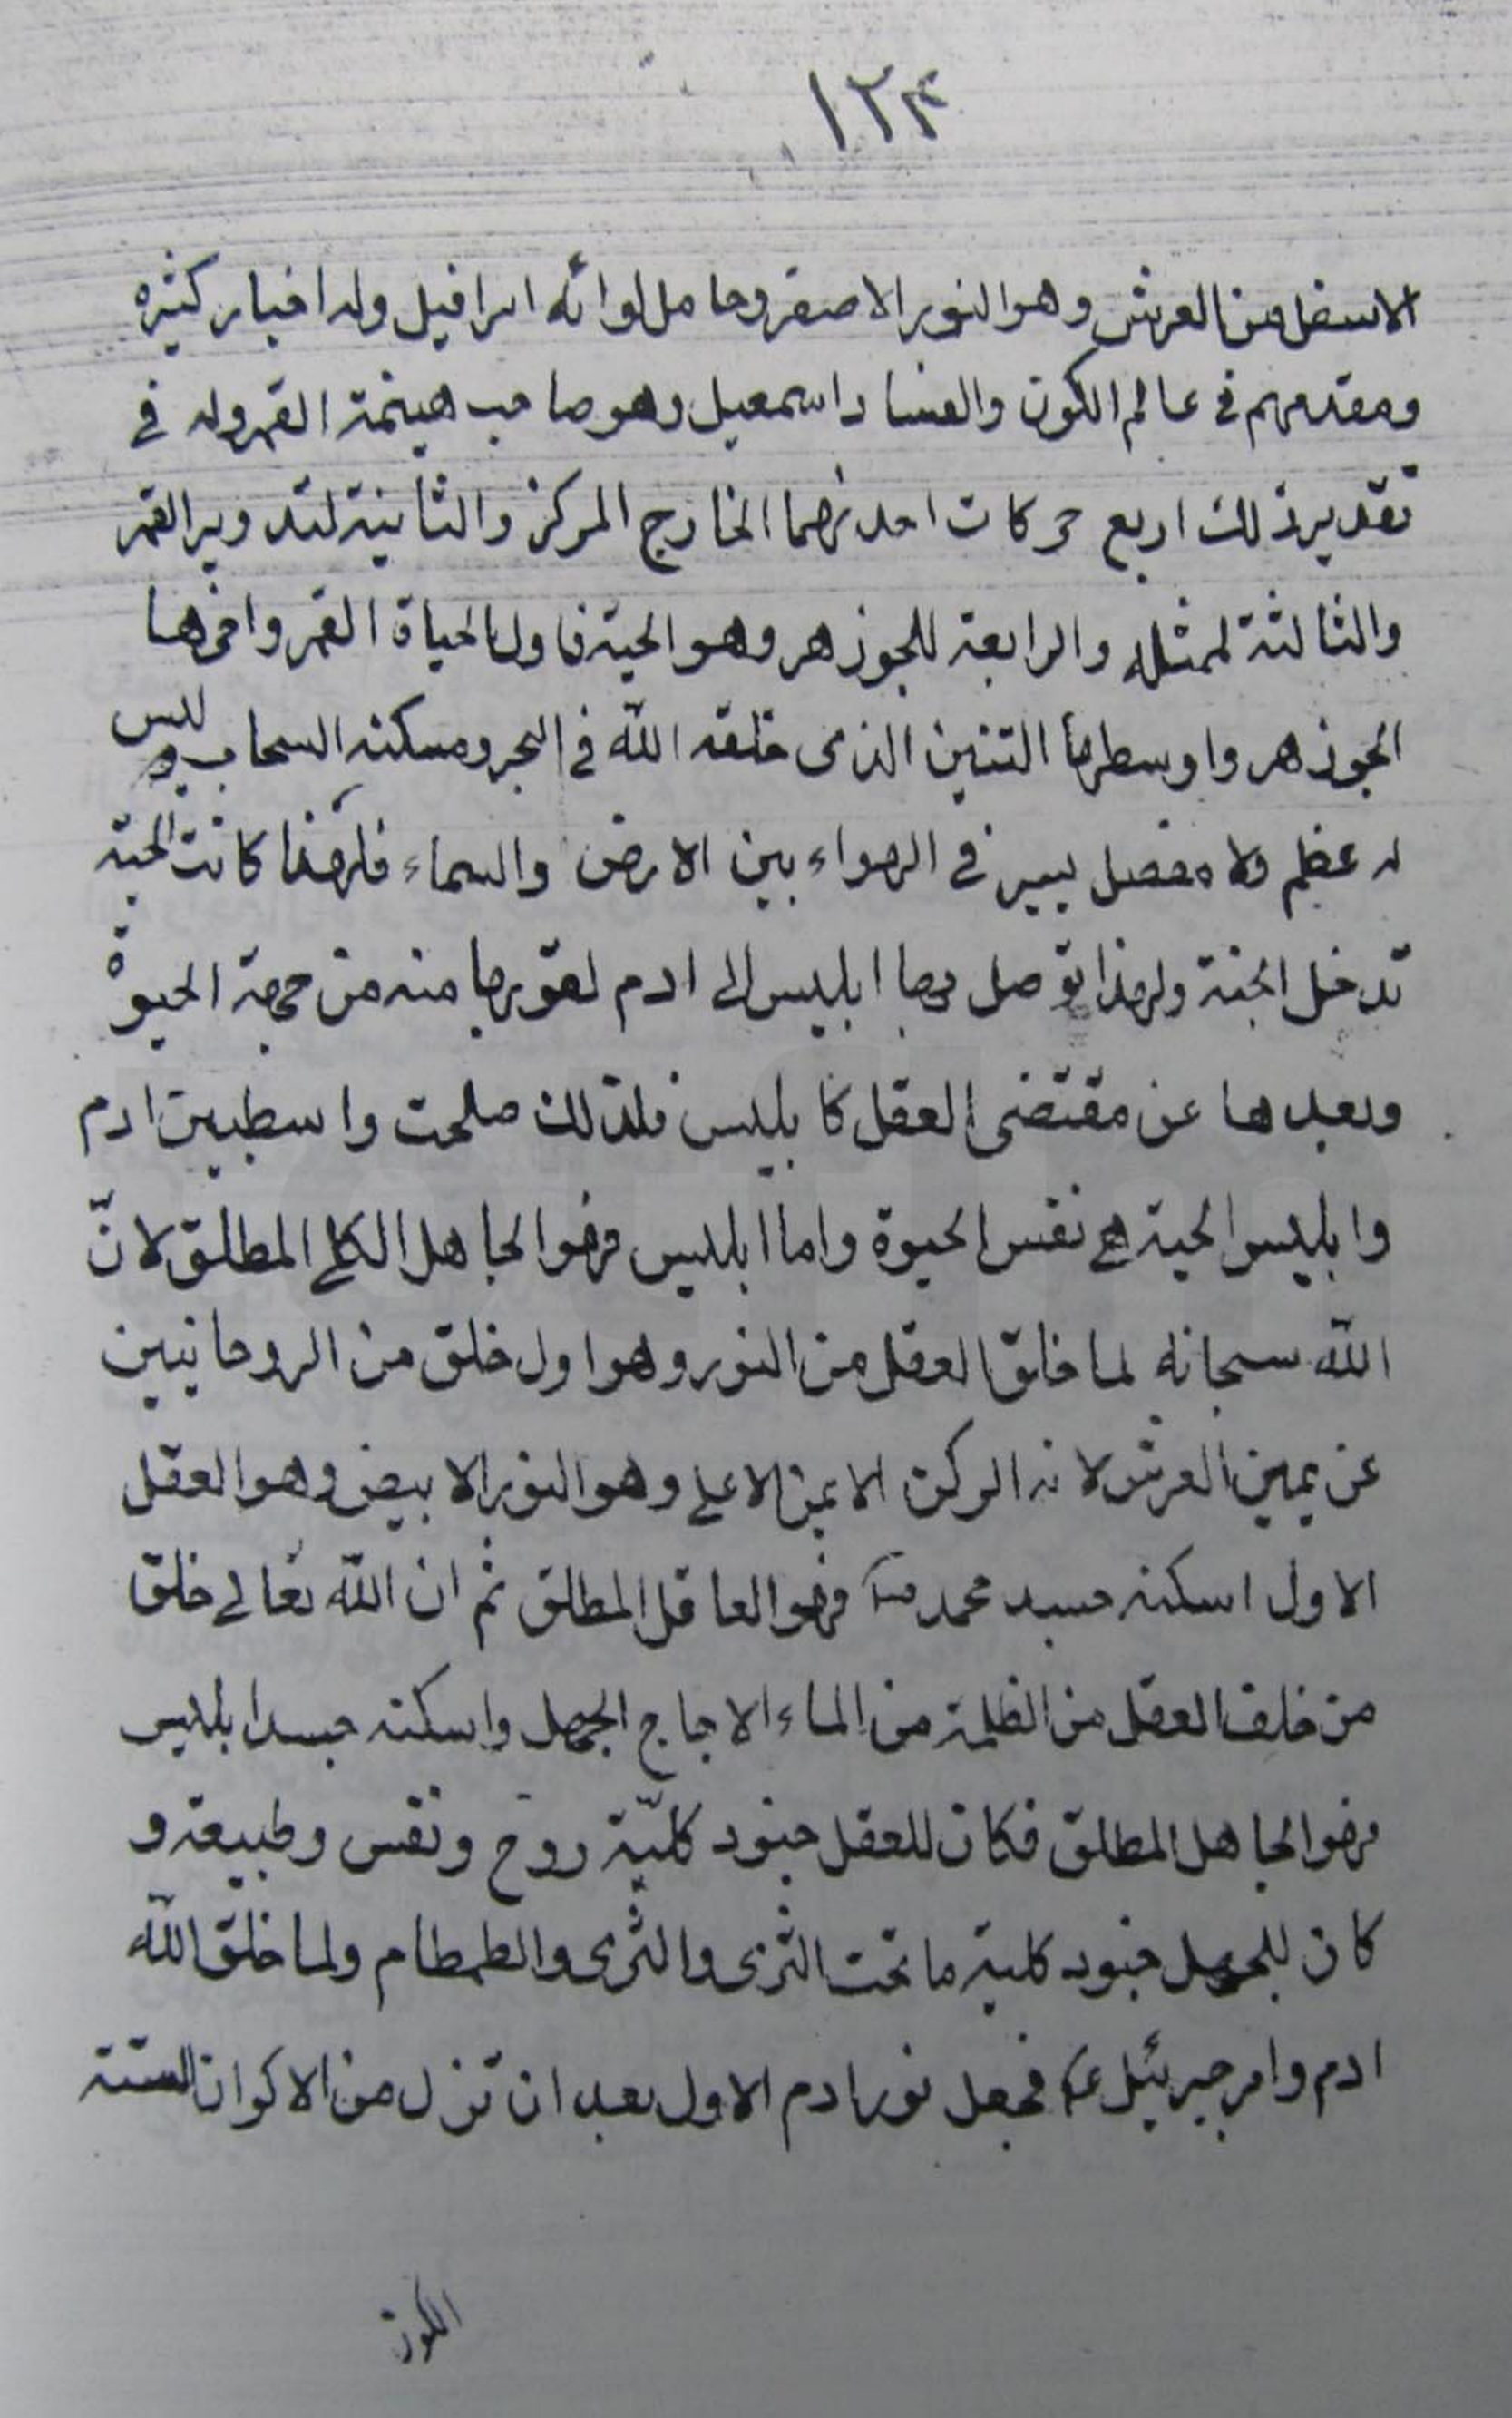 ١٢٣
الاسفل من العرش وهو النور الاصفر وحامل لوائه اسرافيل وله اخبار كثيره
ومقدمهم فى عالم الكون والفساد اسمعيل وهو صاحب هيمنة القمر وله فى
تقدير ذلك اربع حركات احدىهما الخارج المركز والثانية لتدوير القمر
والثالثة لممثله والرابعة للجوزهر وهو الحية فاولها حياة القمر واخرها
الجوزهر واوسطها التنين الذى خلقه الله فى البحر ومسكنه السحاب وليس
له عظم ولا مفصل يسير فى الهواء بين الارض والسماء فلهذا كانت الحية
تدخل الجنة ولهذا توصل بها ابليس الى ادم لقوبها منه من جهة الحيوة
وبعدها عن مقتضى العقل كابليس فلذلك صلحت واسطة بين ادم
وابليس الحية هى نفس الحيوة واما ابليس فهو الجاهل الكلى المطلق لانّ
الله سبحانه لما خلق العقل من النور وهو اول خلق من الروحانيين
عن يمين العرش لانه الركن الايمن الاعلى وهو النور الابيض وهو العقل
الاول اسكنه جسد محمد ص فهو العاقل المطلق ثم ان الله تعالى خلق
من خلف العقل من الظلمة من الماء الاجاج الجهل واسكنه جسد ابليس
فهو الجاهل المطلق فكان للعقل جنود كليّة روح ونفس وطبيعة و
كان للجهل جنود كلية ما تحت الثرى والثرى والطمطام ولما خلق الله
ادم وامر جبرئيل ع فجعل نور ادم الاول بعد ان تنزل من الاكوان الستة
الكون